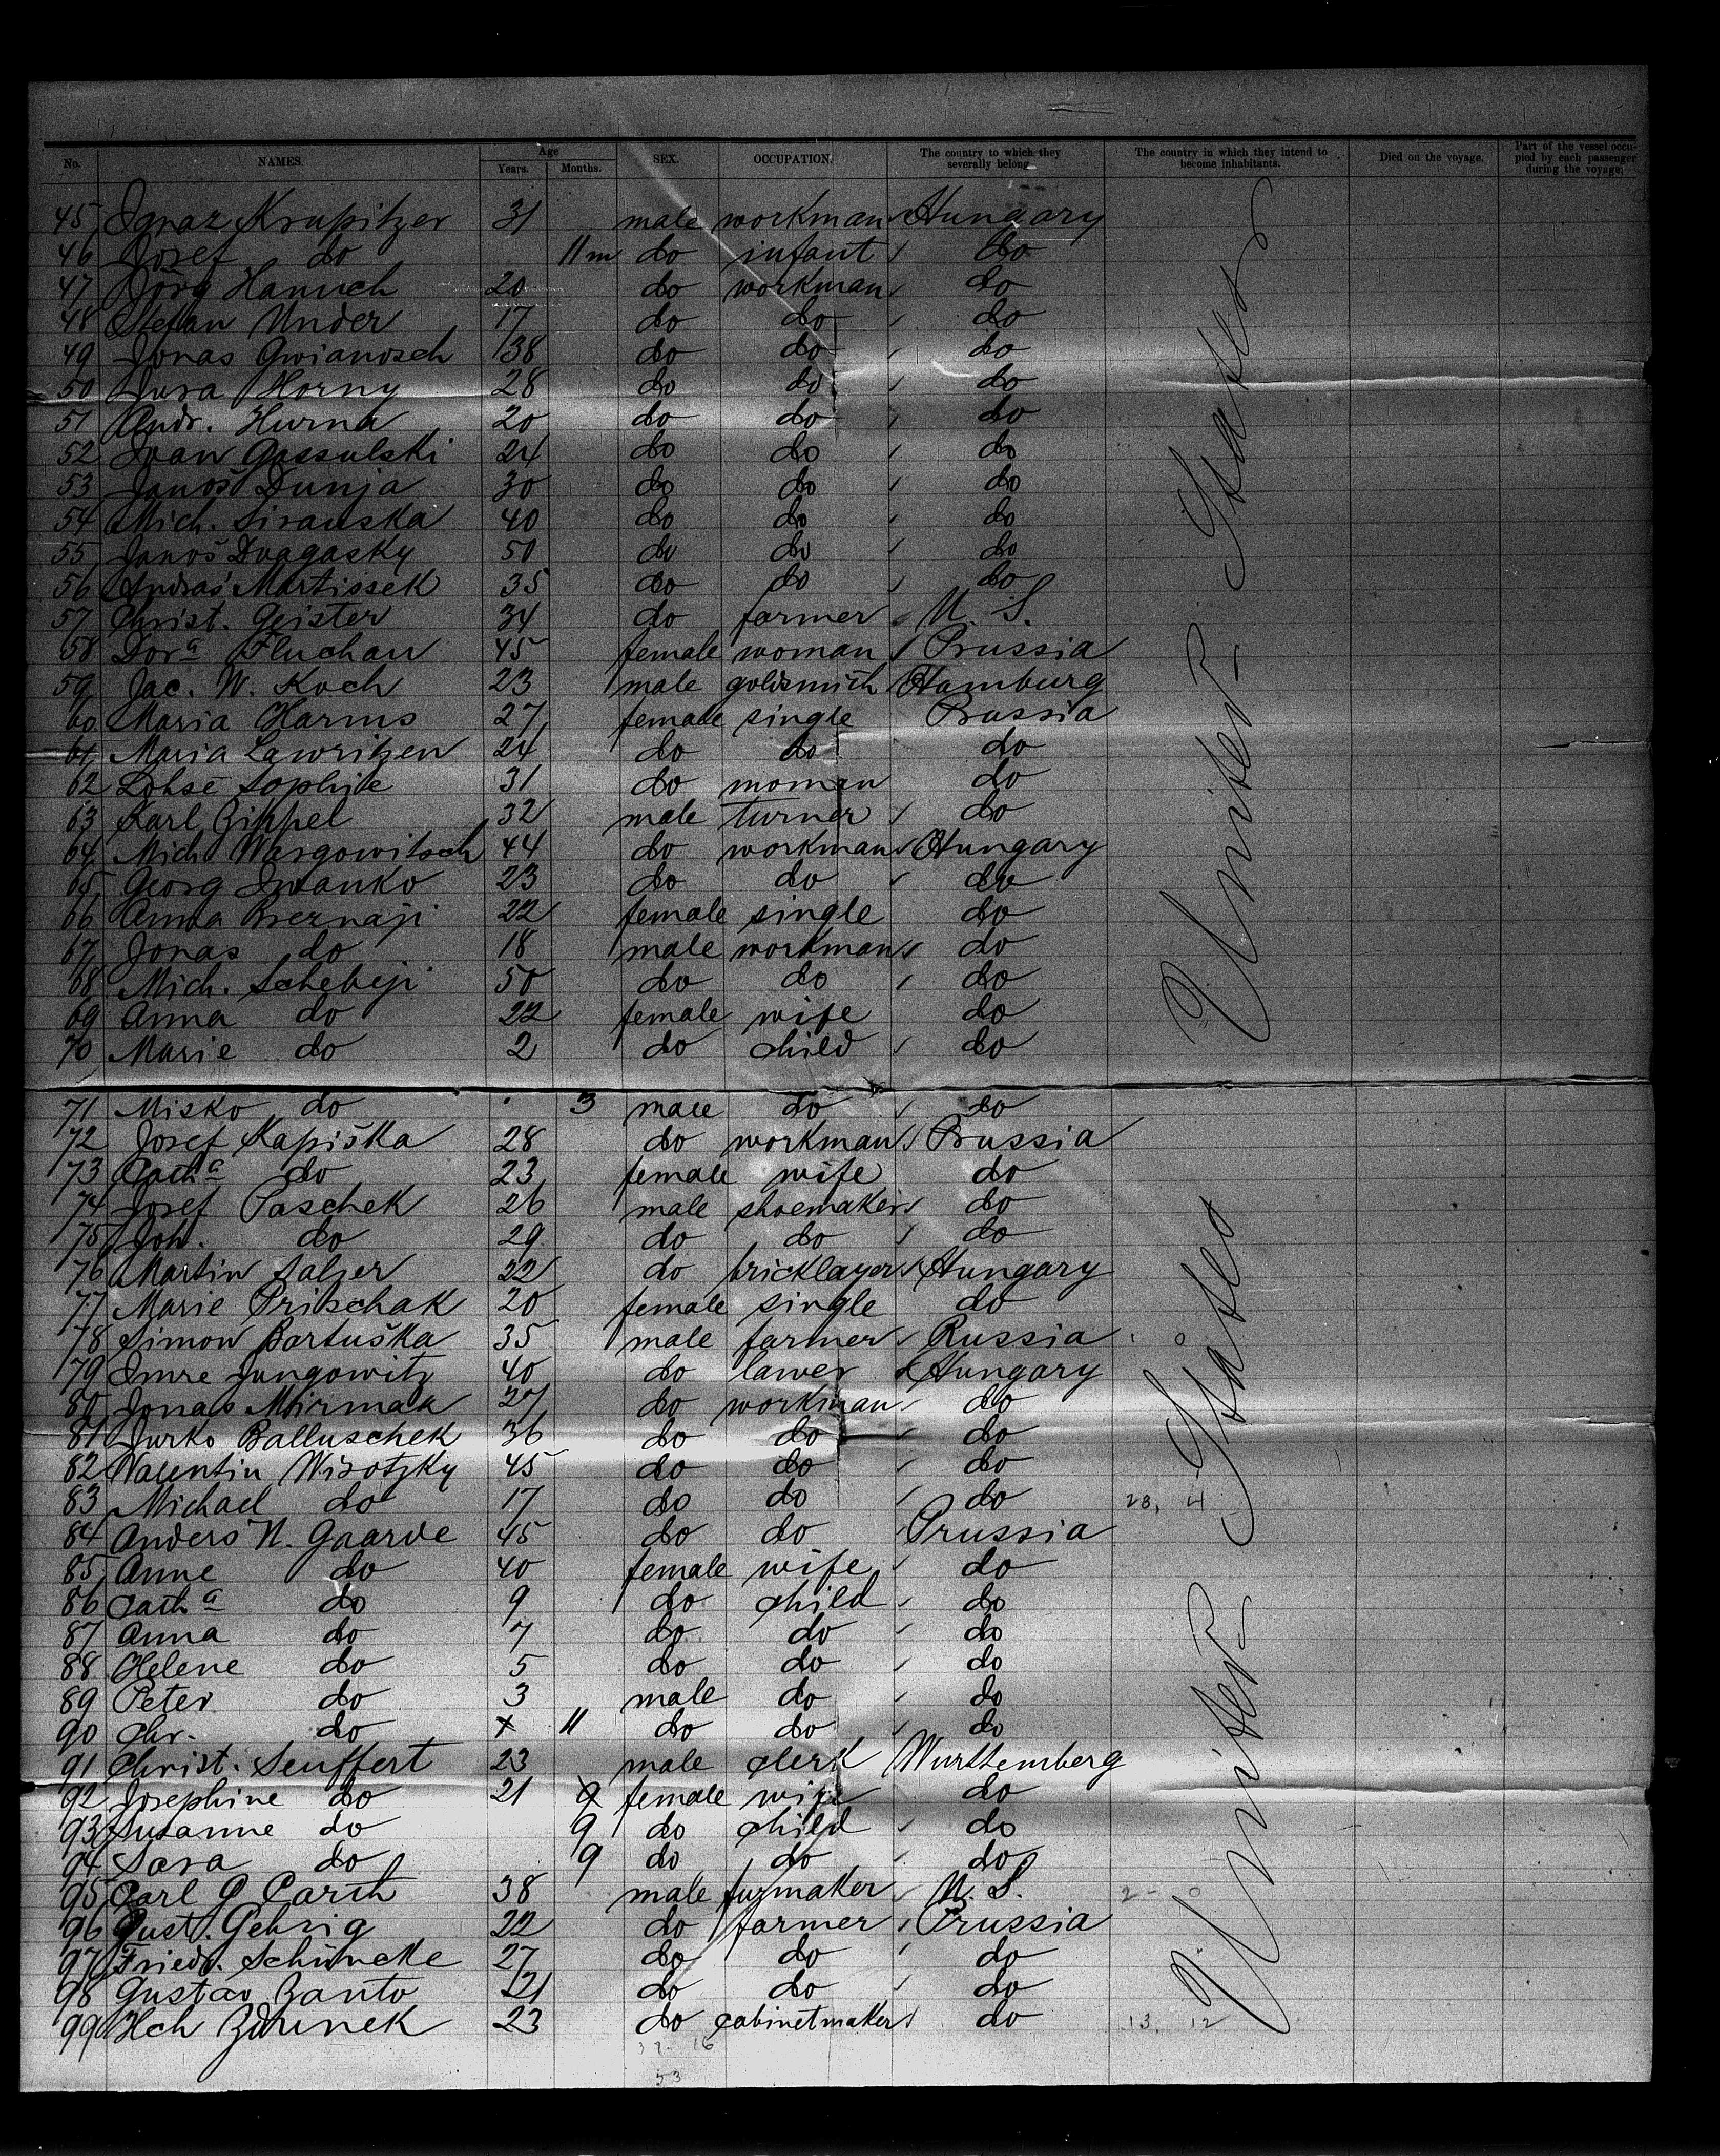 No. NAMES. Age Years. Months. SEX. OCCUPATION. The country to which they severally belong. The country in which they intend to become inhabitants. Died on the voyage. Part of the vessel occupied by each passenger during the voyage.
45 Ignaz Krupitzer 31 male workman Hungary
46 Josef do 11 m do infant do
47 Jörg Hanuch 20 do workman do
48 Stefan Under 17 do do do
49 Jonas Gwianosch 38 do do do
50 Jura Horny 28 do do do
51 Andr. Hurna 20 do do do
52 Ivan Gassulski 24 do do do
53 Janoš Dunja 30 do do do
54 Mich. Sirauska 40 do do do
55 Janoš Dragasky 50 do do do
56 Andras Martissek 35 do do do
57 Christ. Geister 34 do farmer U. S.
58 Dorª Fluchau 45 female woman Prussia
59 Jac. W. Koch 23 male goldsmith Hamburg
60 Maria Harms 27 female single Prussia
61 Maria Lawritzen 24 do do do
62 Lohse Sophie 31 do woman do
63 Karl Zippel 32 male turner do
64 Mich Wargowitsch 44 do workman Hungary
65 Georg Iwanko 23 do do do
66 Anna Bernaji 22 female single do
67 Jonas do 18 male workman do
68 Mich. Schebeji 50 do do do
69 Anna do 22 female wife do
70 Marie do 2 do child do
United States
71 Misko do 3 male do do
72 Josef Kapiška 28 do workman Prussia
73 Cathª do 23 female wife do
74 Josef Paschek 26 male shoemaker do
75 Joh. do 29 do do do
76 Martin Salzer 22 do bricklayer Hungary
77 Marie Prischak 20 female single do
78 Simon Bartuška 35 male farmer Russia
79 Imre Jungowitz 40 do lawer Hungary
80 Jonas Mirmak 27 do workman do
81 Jurko Balluschek 36 do do do
82 Valentin Wisotzky 45 do do do
83 Michael do 17 do do do 23, 4
84 Anders N. Gaarde 45 do do Prussia
85 Anne do 40 female wife do
86 Cathª do 9 do child do
87 Anna do 7 do do do
88 Helene do 5 do do do
89 Peter do 3 male do do
90 Chr. do 11 do do do
91 Christ. Seuffert 23 male clerk Wurttemberg
92 Josephine do 21 9 female wife do
93 Susanne do 9 do child do
94 Sara do 9 do do do
95 Carl G Parth 38 male furmaker U. S. 2 - 0
96 Gust. Gehrig 22 do farmer Prussia
97 Friedr. Schüncke 27 do do do
98 Gustav Zanto 21 do do do
99 Hch Zdunek 23 do cabinetmaker do 13, 12
United States
37 - 16
53